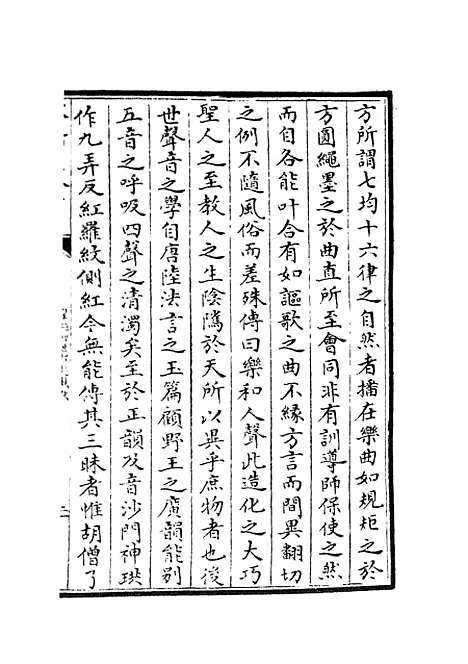 方所謂七均十六律之自然者播在樂曲如規矩之於
方圓繩墨之於曲直所至會同非有訓導師保使之然
而自各能叶合有如謳歌之曲不緣方言而間異翻切
之例不隨風俗而差殊傳曰樂和人聲此造化之大巧
聖人之至教人之生陰隲於天所以異乎庶物者也後
世聲音之學自唐陸法言之玉篇顧野王之廣韻能别
五音之呼吸四聲之清濁矣至於正韻及音沙門神珙
作九弄反紐羅紋側紅今無能傳其三昧者惟胡僧了